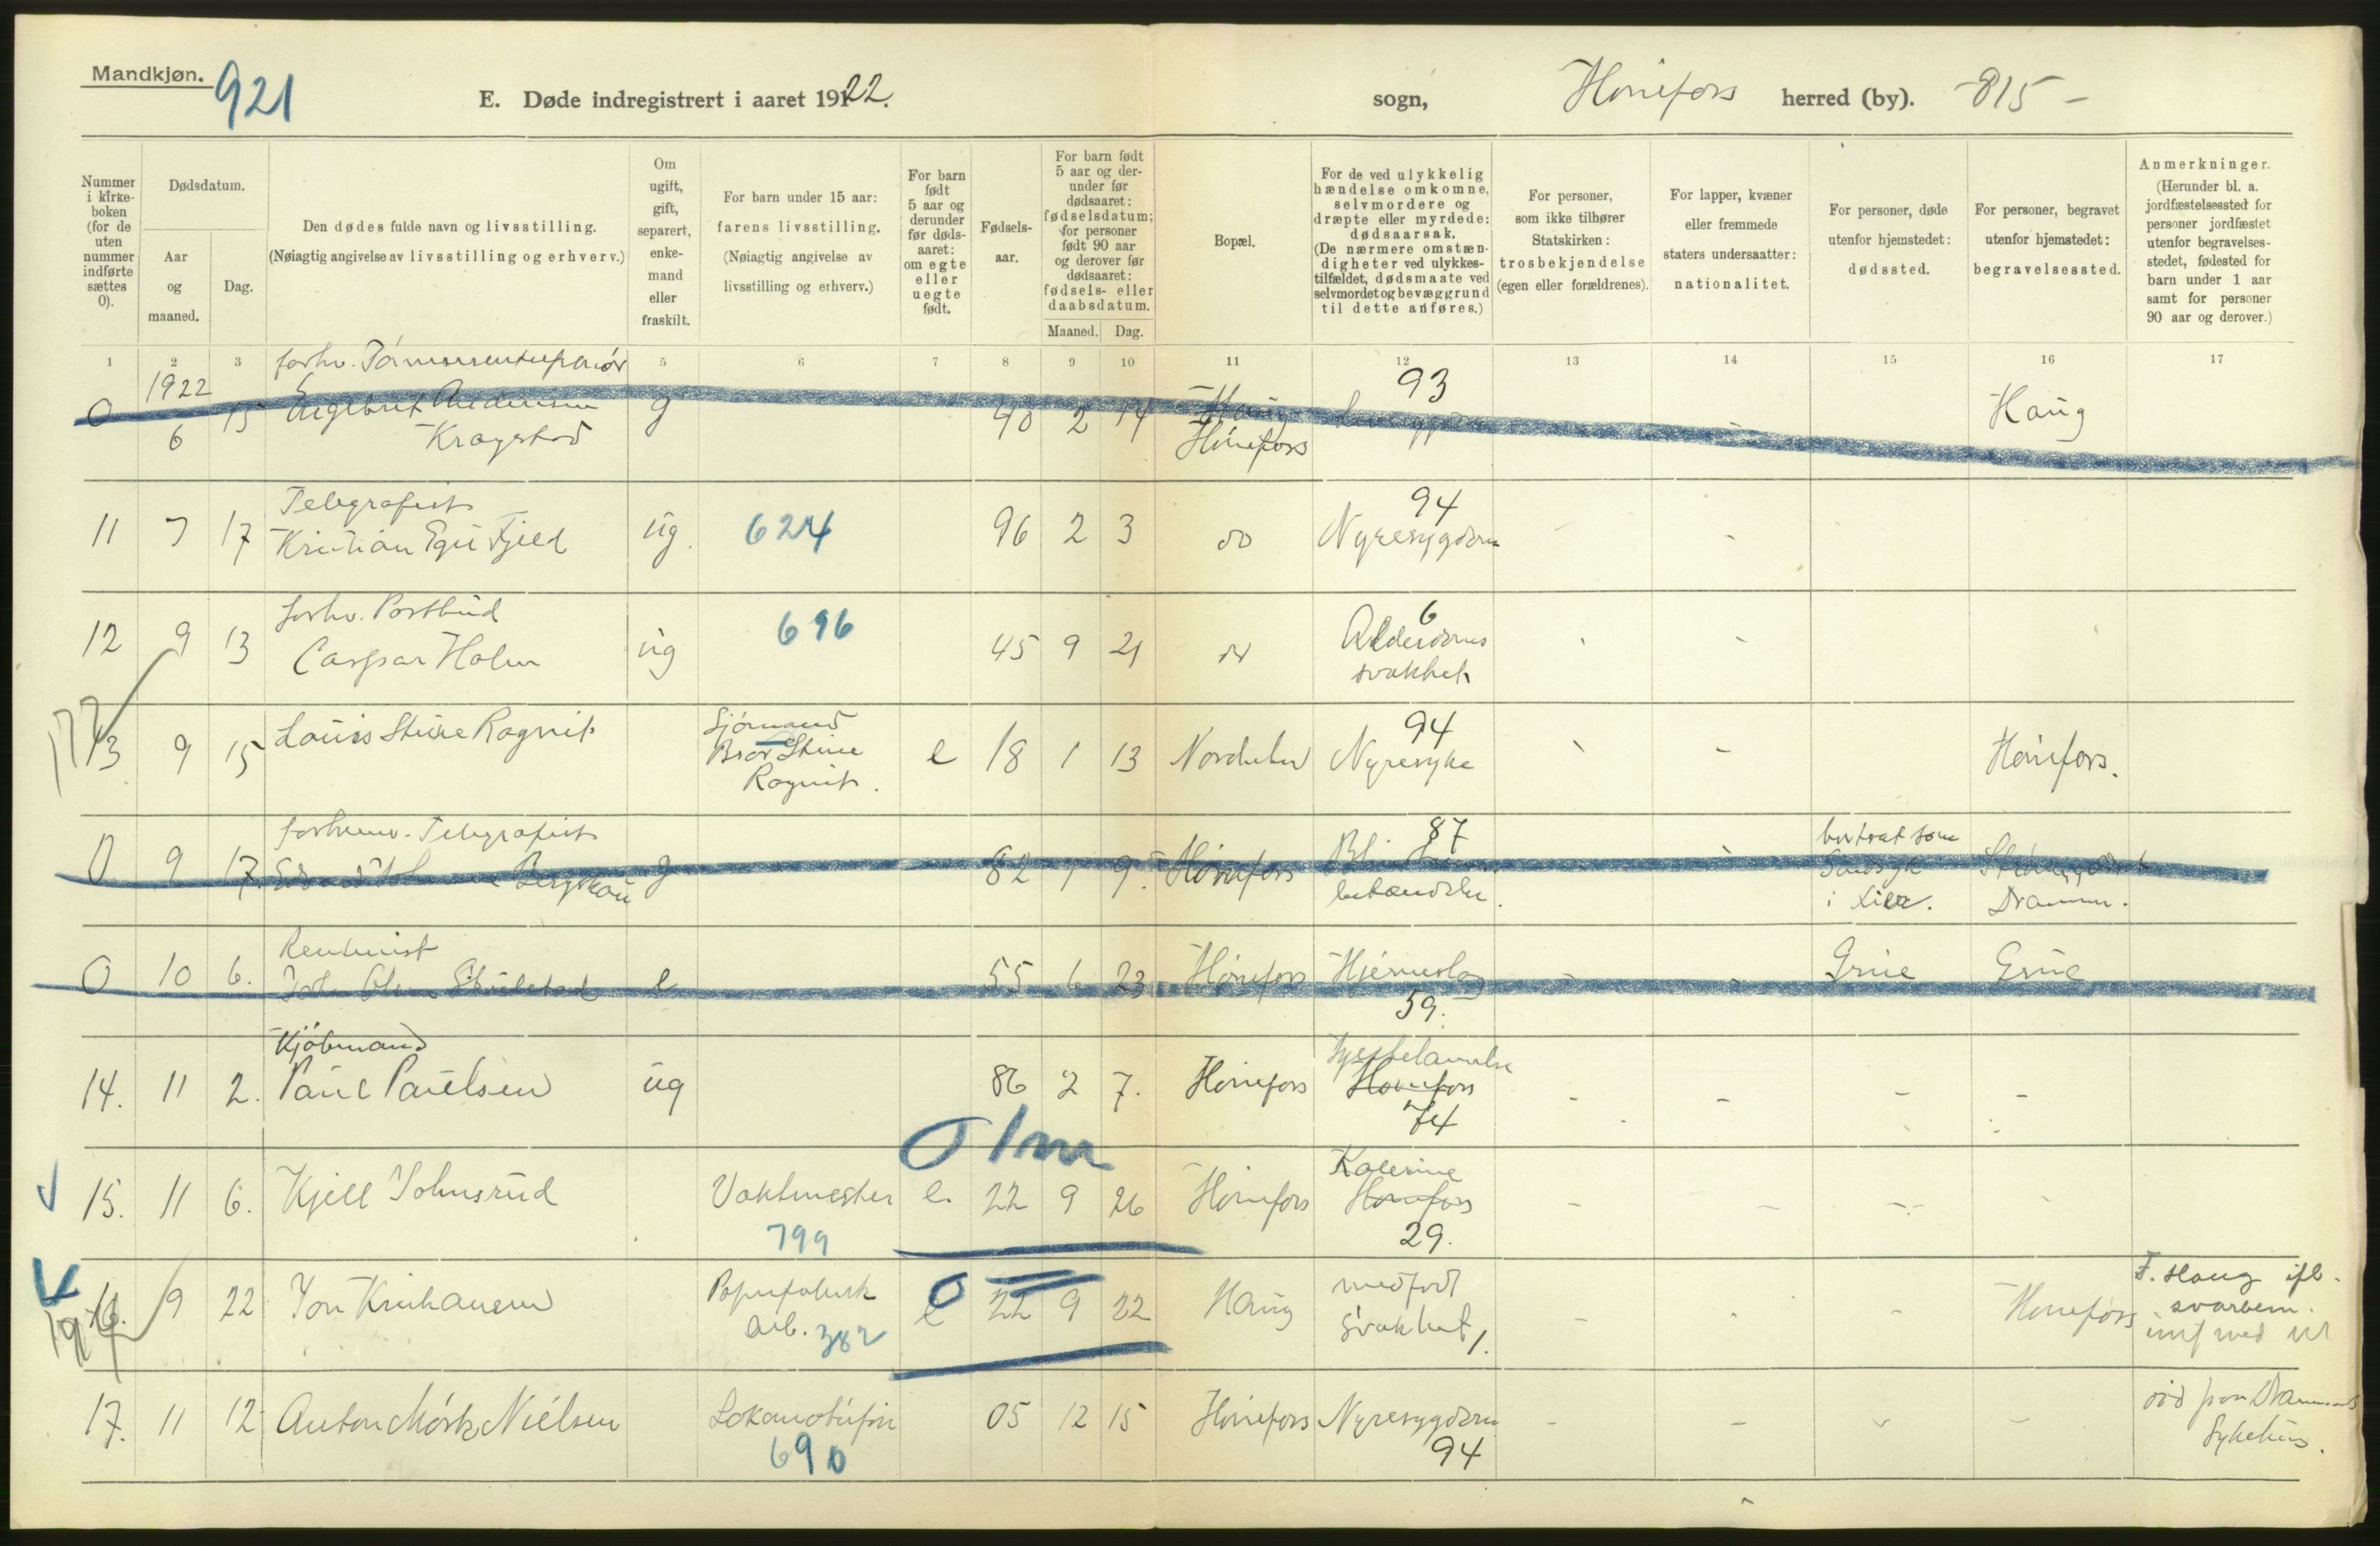 Mandkjøn.
921
E. Døde indregistrert i aaret 1922.
sogn,
Hønefos herred (by). -815-
Nummer i kirkeboken (for de uten nummer indførte sættes 0).
Dødsdatum.
Aar og maaned.
Dag.
Den dødes fulde navn og livsstilling.
(Nøiagtig angivelse av livsstilling og erhverv.)
Om ugift, gift, separert, enkemand eller fraskilt.
For barn under 15 aar:
farens livsstilling.
(Nøiagtig angivelse av livsstilling og erhverv.)
For barn født 5 aar og derunder før dødsaaret: om egte eller uegte født.
Fødselsaar.
For barn født 5 aar og derunder før dødsaaret: fødselsdatum; for personer født 90 aar og derover før dødsaaret: fødsels- eller daabsdatum.
Maaned. Dag.
Bopæl.
For de ved ulykkelig hændelse omkomne, selvmordere og dræpte eller myrdede: dødsaarsak.
(De nærmere omstændigheter ved ulykkestilfældet, dødsmaate ved selvmordet og bevæggrund til dette anføres.)
For personer, som ikke tilhører Statskirken: trosbekjendelse (egen eller forældrenes).
For lapper, kvæner eller fremmede staters undersaatter: nationalitet.
For personer, døde utenfor hjemstedet: dødssted.
For personer, begravet utenfor hjemstedet: begravelsessted.
Anmerkninger.
(Herunder bl. a. jordfæstelsessted for personer jordfæstet utenfor begravelsesstedet, fødested for barn under 1 aar samt for personer 90 aar og derover.)
1 2 3 5 6 7 8 9 10 11 12 13 14 15 16 17
1922 forhv. 93
0 6 15 Engebret Andersen g 40 2 14 Haug Haug
Kragstad Hønefos
Telegrafist 94
11 7 17 Kristian Fjeld ug. 624 96 2 3 do Nyresygdom - -
forhv. Postbud 6
12 9 13 Caspar Holm ug 696 45 9 21 do Alderdoms
svakhet
Sjømand 94
13 9 15 Louis Stene Ragnit Bror Stene e 18 1 13 Nyresyke - - Hønefos.
Ragnit.
forhenv. Telegrafist 87 bortsat som
0 9 17 Bergskau g 82 9 Hønefos Sindsyk
i Lier. Drammen.
Rentenist
0 10 6. e 55 6 23 Hønefos Hjerneslag - - Grue Grue
59.
Kjøbmand
14. 11 2. Paul Paulsen ug 86 2 7. Hønefos Hønefos - - - -
74
0 1 m
15. 11 6. Kjell Johnsrud Vaktmester e. 22 9 26 Hønefos Kolerine Hønefos - - - -
799 29.
16. 9 22 Jon Kristiansen Papirfabrik e 22 9 22 Haug medfødt - - - Hønefos F. Haug ifl.
arb. 382 0 svakhet 1. svarbem.
19
17. 11 12 Anton Mørk Nielsen 05 12 15 Hønefos Nyresygdom - - - - død paa Drammens
690 94 Sykehus.